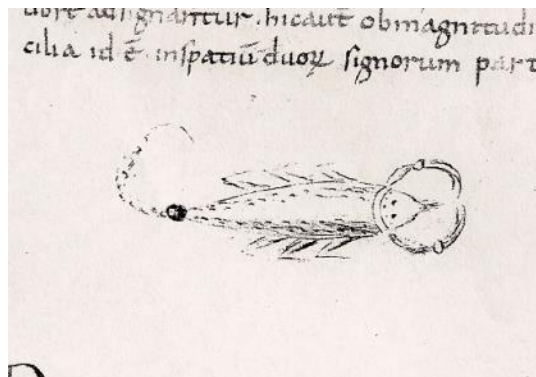 hicaut̄ obmagnitudi
cilia id ē inspatiū duoꝝ signorum part